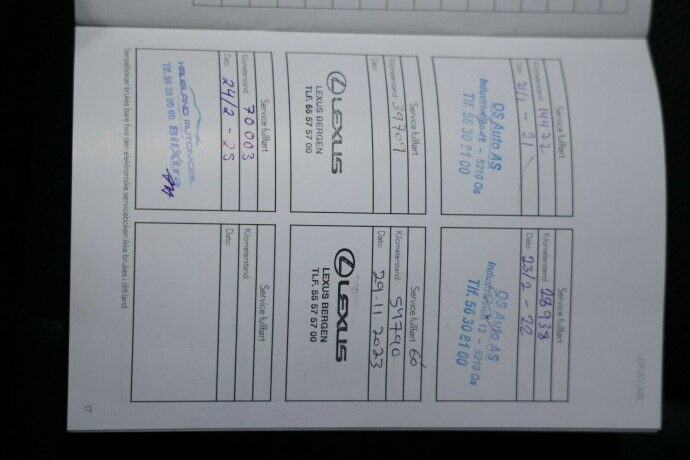 LEXUS CARE
Service fullført
Kilometerstand 14172
Dato: 21/1 - 21
OS Auto AS
Industrivegen 13 - 5210 Os
Tlf. 56 30 81 00
Service fullført
Kilometerstand 28938
Dato: 23/2 - 22
OS Auto AS
13 - 5210 Os
Tlf. 56 30 81 00
Service fullført
Kilometerstand 39707
Dato:
LEXUS
LEXUS BERGEN
TLF. 55 57 57 00
Service fullført 60
Kilometerstand 54790
Dato: 29.11 2023
LEXUS
LEXUS BERGEN
TLF. 55 57 57 00
Service fullført
Kilometerstand 70003
Dato: 24/2 - 25
Tlf. 56 39 05 00
Service fullført
Kilometerstand
Dato:
Stempelboksen brukes bare hvis den elektroniske serviceboken ikke brukes i ditt land.
17